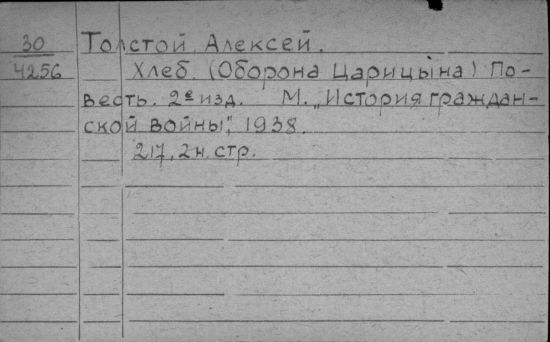 30 Толстой, Алексей.
4256 Хлеб. (Оборона Царицына) По-
весть. 2е изд. М. „История граждан-
ской войны", 1938.
217, 2 н. стр.